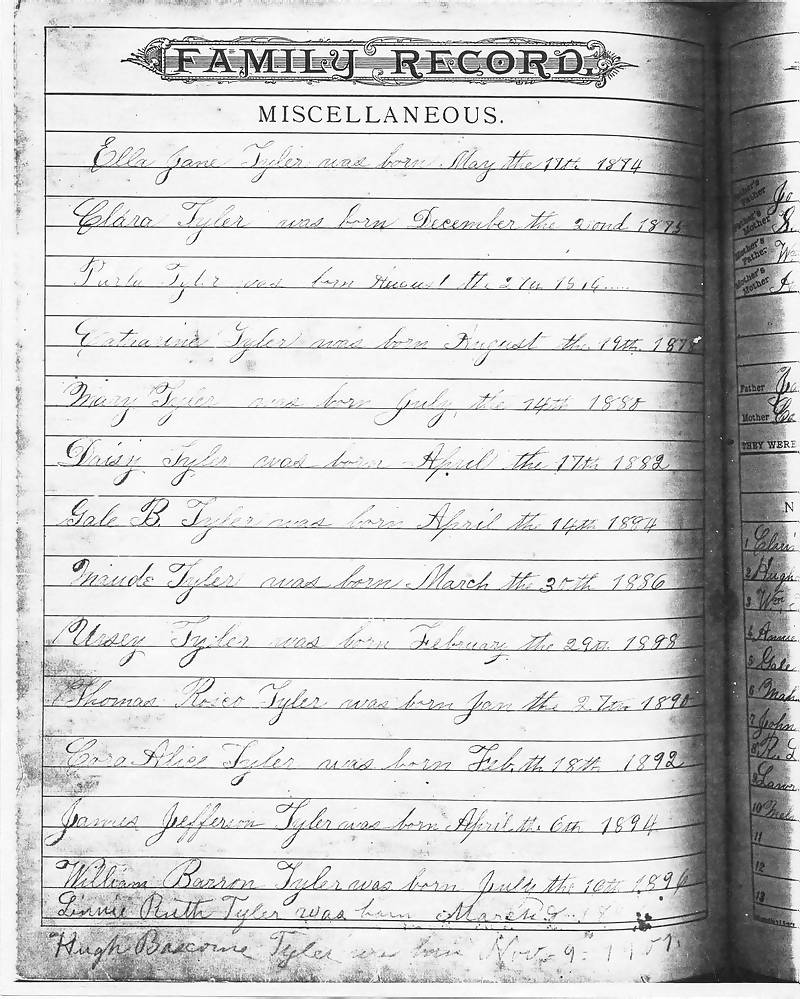 FAMILY RECORD.
MISCELLANEOUS.
Ella Jane Tyler was born May the 17th 1874
Clara Tyler was born December the 22ond 1875
Purla Tyler was born August the 27th
Catharine Tyler was born August the 19th 1878
Mary Tyler was born July the 14th 1880
Daisy Tyler was born April the 17th 1882
Gale B. Tyler was born April the 14th 1884
Maude Tyler was born March the 30th 1886
Ursey Tyler was born February the 29th 1898
Thomas Rosco Tyler was born Jan the 27th 1890
Cora Alice Tyler was born Feb. th 18th 1892
James Jefferson Tyler was born April th. 6th 1894
William Barron Tyler was born July the 16th 1896
Linnie Ruth Tyler was born March
Hugh Bascome Tyler was born Nov. 9
Mother's
Father
Mother's
Mother
Father
Mother
THEY WERE
N
1
2 Hugh
3 Wm.
4 Annie
5 Gale
6
7 John
8
9
10
11
12
13